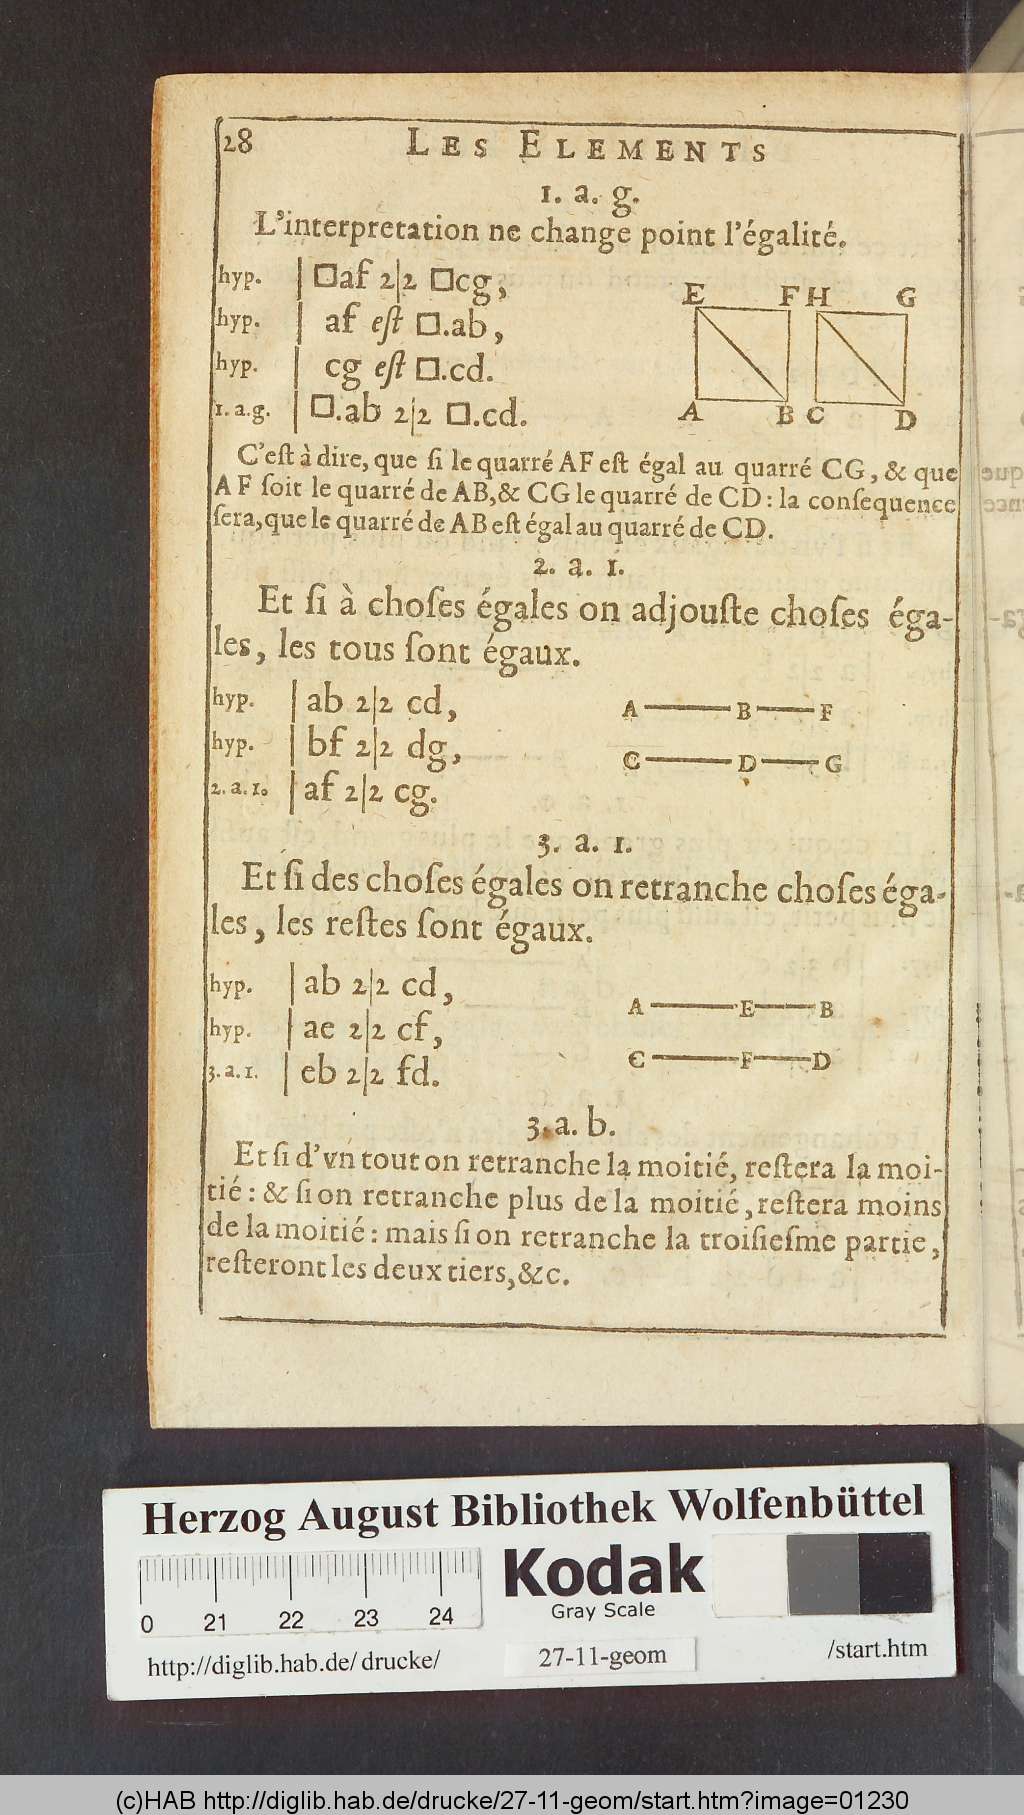 28 LES ELEMENTS
1. a. g.
L'interpretation ne change point l'égalité.
hyp. | □af 2|2 □cg,
hyp. | af eſt □.ab,
hyp. | cg eſt □.cd.
1. a.g. | □.ab 2|2 □.cd.
E F H G
A B C D
C'eſt à dire, que ſi le quarré AF eſt égal au quarré CG, & que
AF ſoit le quarré de AB, & CG le quarré de CD: la conſequence
ſera, que le quarré de AB eſt égal au quarré de CD.
2. a. 1.
Et ſi à choſes égales on adjouſte choſes éga-
les, les tous ſont égaux.
hyp. | ab 2|2 cd,
hyp. | bf 2|2 dg,
2. a. 1. | af 2|2 cg.
A B F
C D G
3. a. 1.
Et ſi des choſes égales on retranche choſes éga-
les, les reſtes ſont égaux.
hyp. | ab 2|2 cd,
hyp. | ae 2|2 cf,
3. a. 1. | eb 2|2 fd.
A E B
C F D
3. a. b.
Et ſi d'vn tout on retranche la moitié, reſtera la moi-
tié: & ſi on retranche plus de la moitié, reſtera moins
de la moitié: mais ſi on retranche la troiſieſme partie,
reſteront les deux tiers, &c.
Herzog August Bibliothek Wolfenbüttel
Kodak
Gray Scale
0 21 22 23 24
http://diglib.hab.de/ drucke/ 27-11-geom /start.htm
(c)HAB http://diglib.hab.de/drucke/27-11-geom/start.htm?image=01230